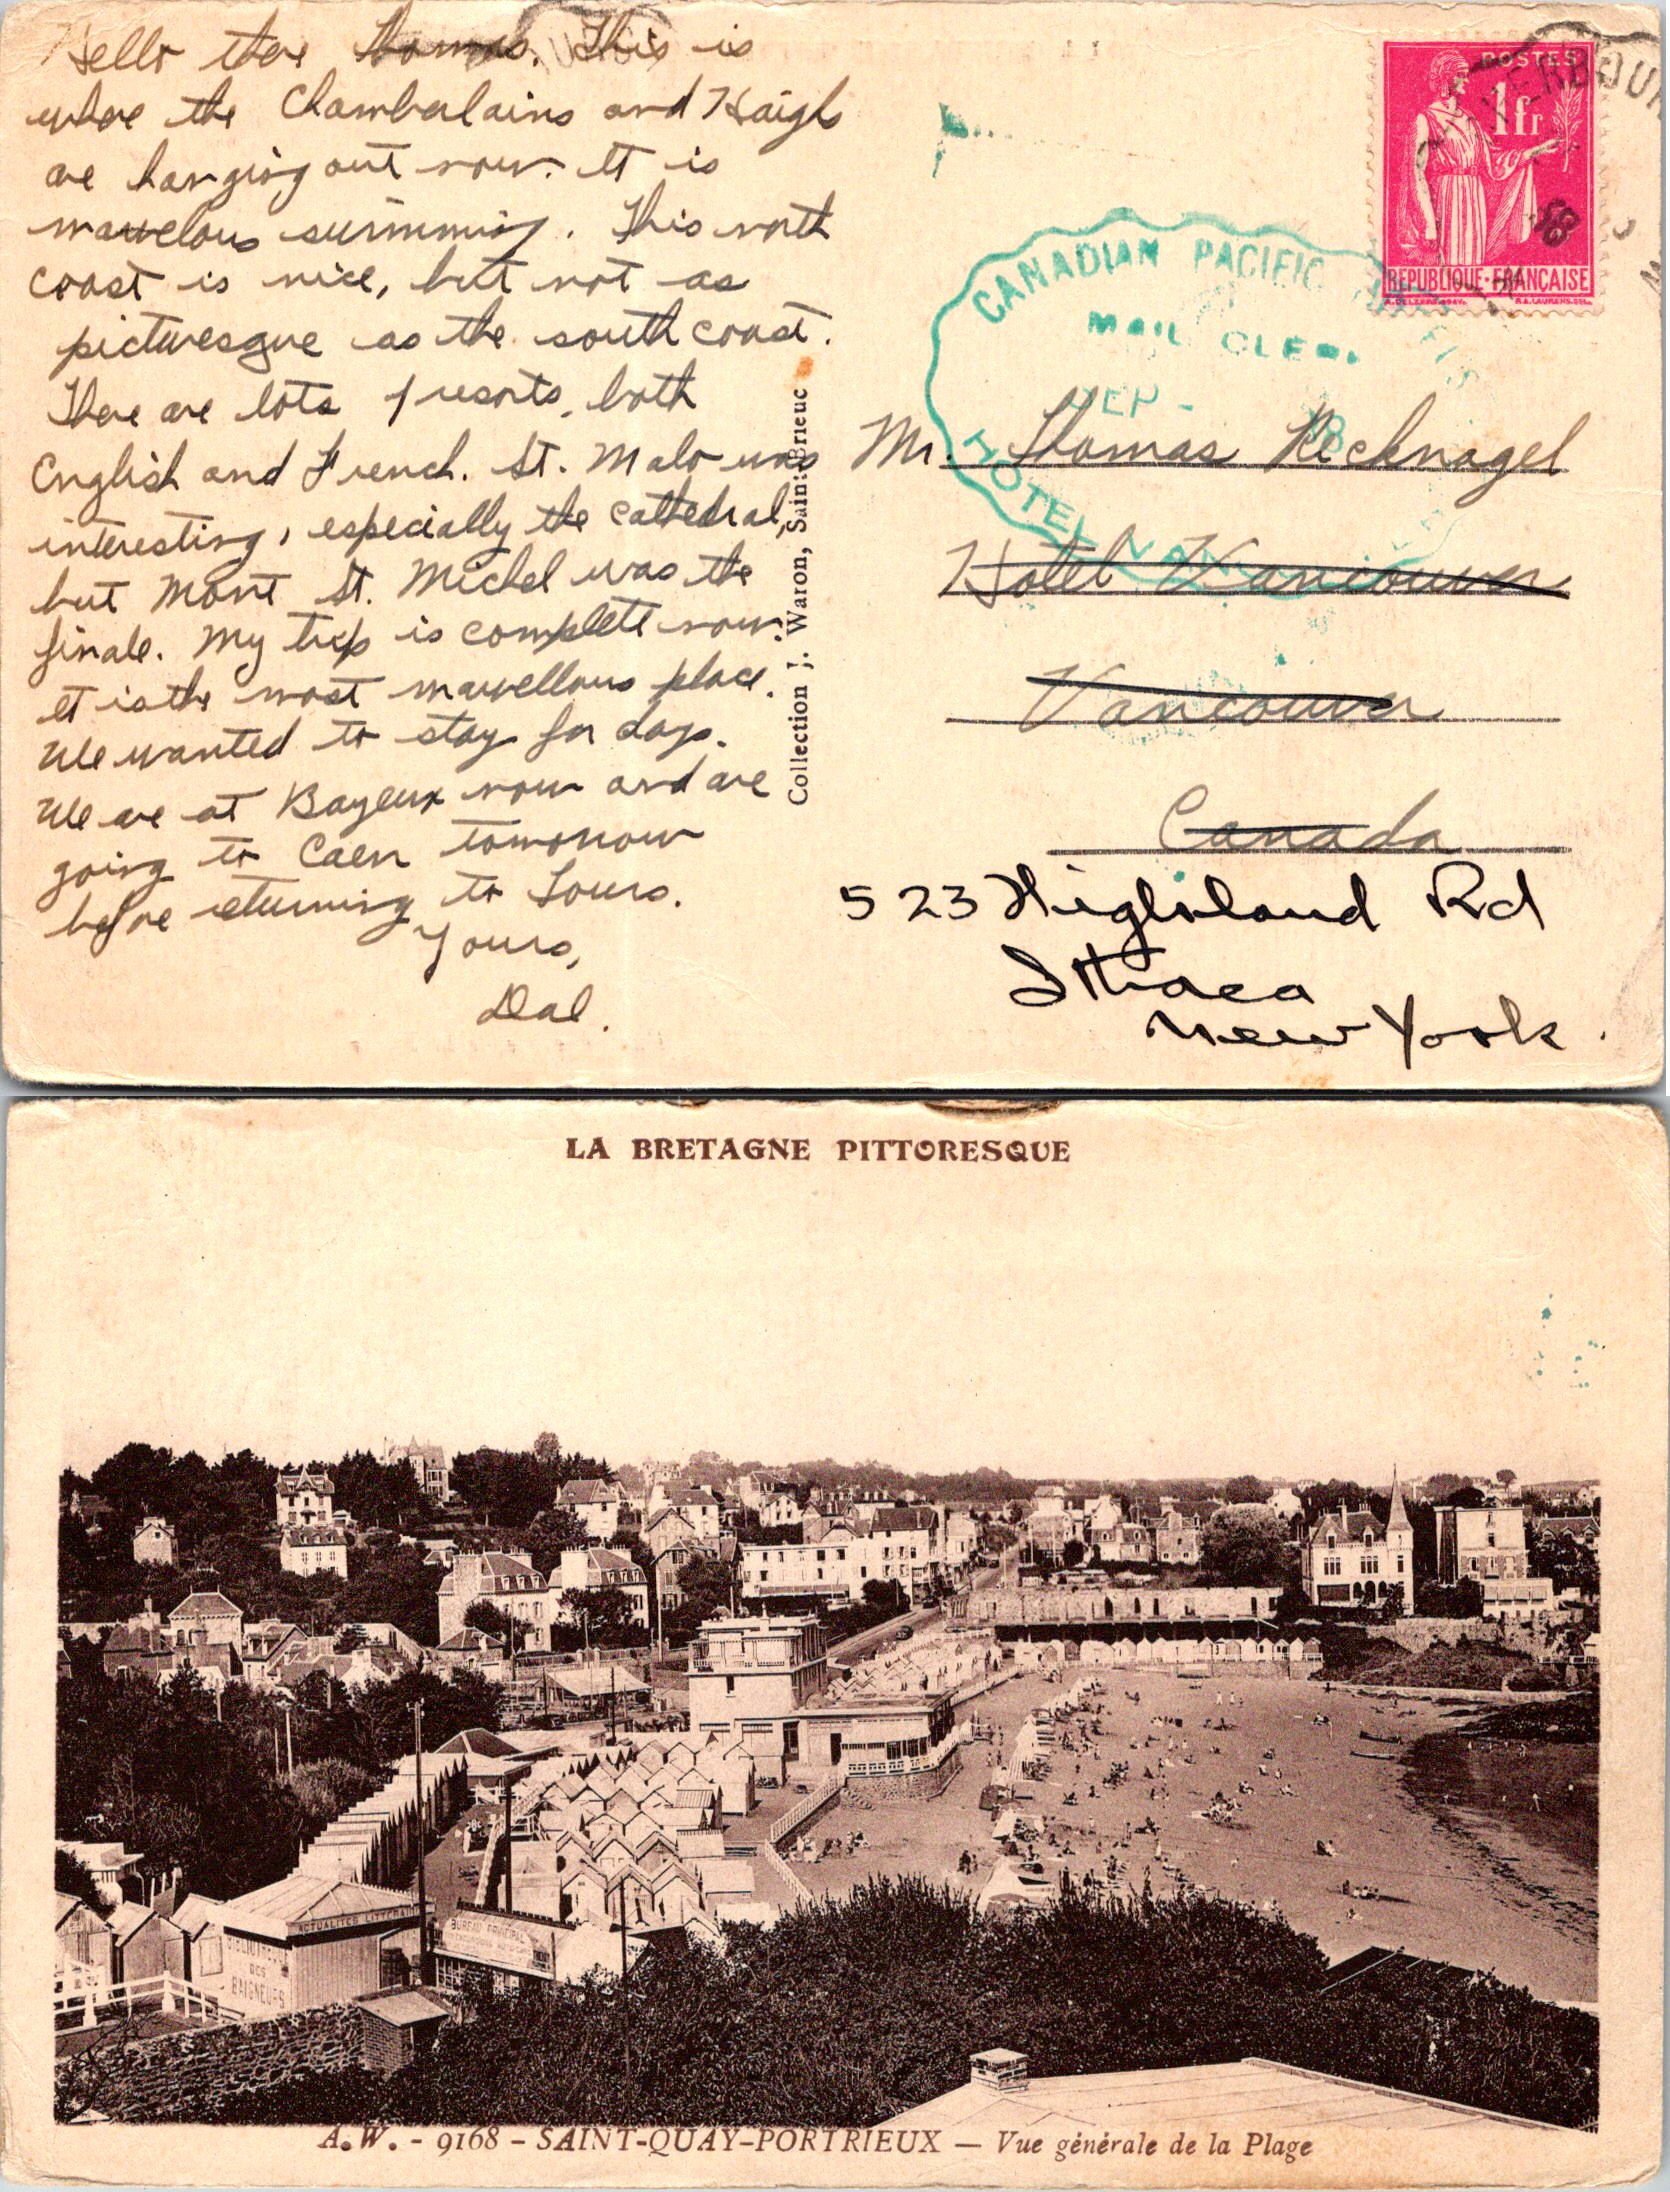 Hello there Thomas. This is
where the Chamberlains and Haighs
are hanging out now. It is
marvelous swimming. This north
coast is nice, but not as
picturesque as the south coast.
There are lots of resorts, both
English and French. St. Malo was
interesting, especially the cathedral,
but Mont St. Michel was the
finale. My trip is complete now.
It is the most marvellous place.
We wanted to stay for days.
We are at Bayeux now and are
going to Caen tomorrow
before returning to Tours.
Yours,
Dal.
Collection J. Waron, Saint-Brieuc
POSTES
1 fr
REPUBLIQUE·FRANÇAISE
CANADIAN PACIFIC HOTELS
MAIL CLERK
SEP - 38
HOTEL VAN
Mr. Thomas Recknagel
Hotel Vancouver
Vancouver
Canada
523 Highland Rd
Ithaca
New York.
LA BRETAGNE PITTORESQUE
ACTUALITÉS LITTÉRAIRES
BIBLIOTHEQUE
DES
BAIGNEURS
BUREAU PRINCIPAL
A. W. - 9168 - SAINT-QUAY-PORTRIEUX — Vue générale de la Plage